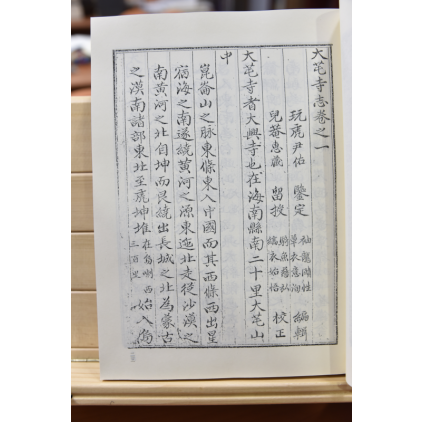 大芚寺志卷之一
玩虎尹佑 鑒定
兒菴惠藏 留授
袖龍賾性
草衣意洵 編輯
騎魚慈弘
縞衣始悟 校正
大芚寺者大興寺也在海南縣南二十里大芚山
中
崑崙山之脉東條東入中國而其西條西出星
宿海之南遂繞黃河之源東迤北走從沙漠之
南黃河之北自坤而艮繞出長城之北為蒙古
之漠南諸部東北至虎坤堆 在烏喇西三百里 始入